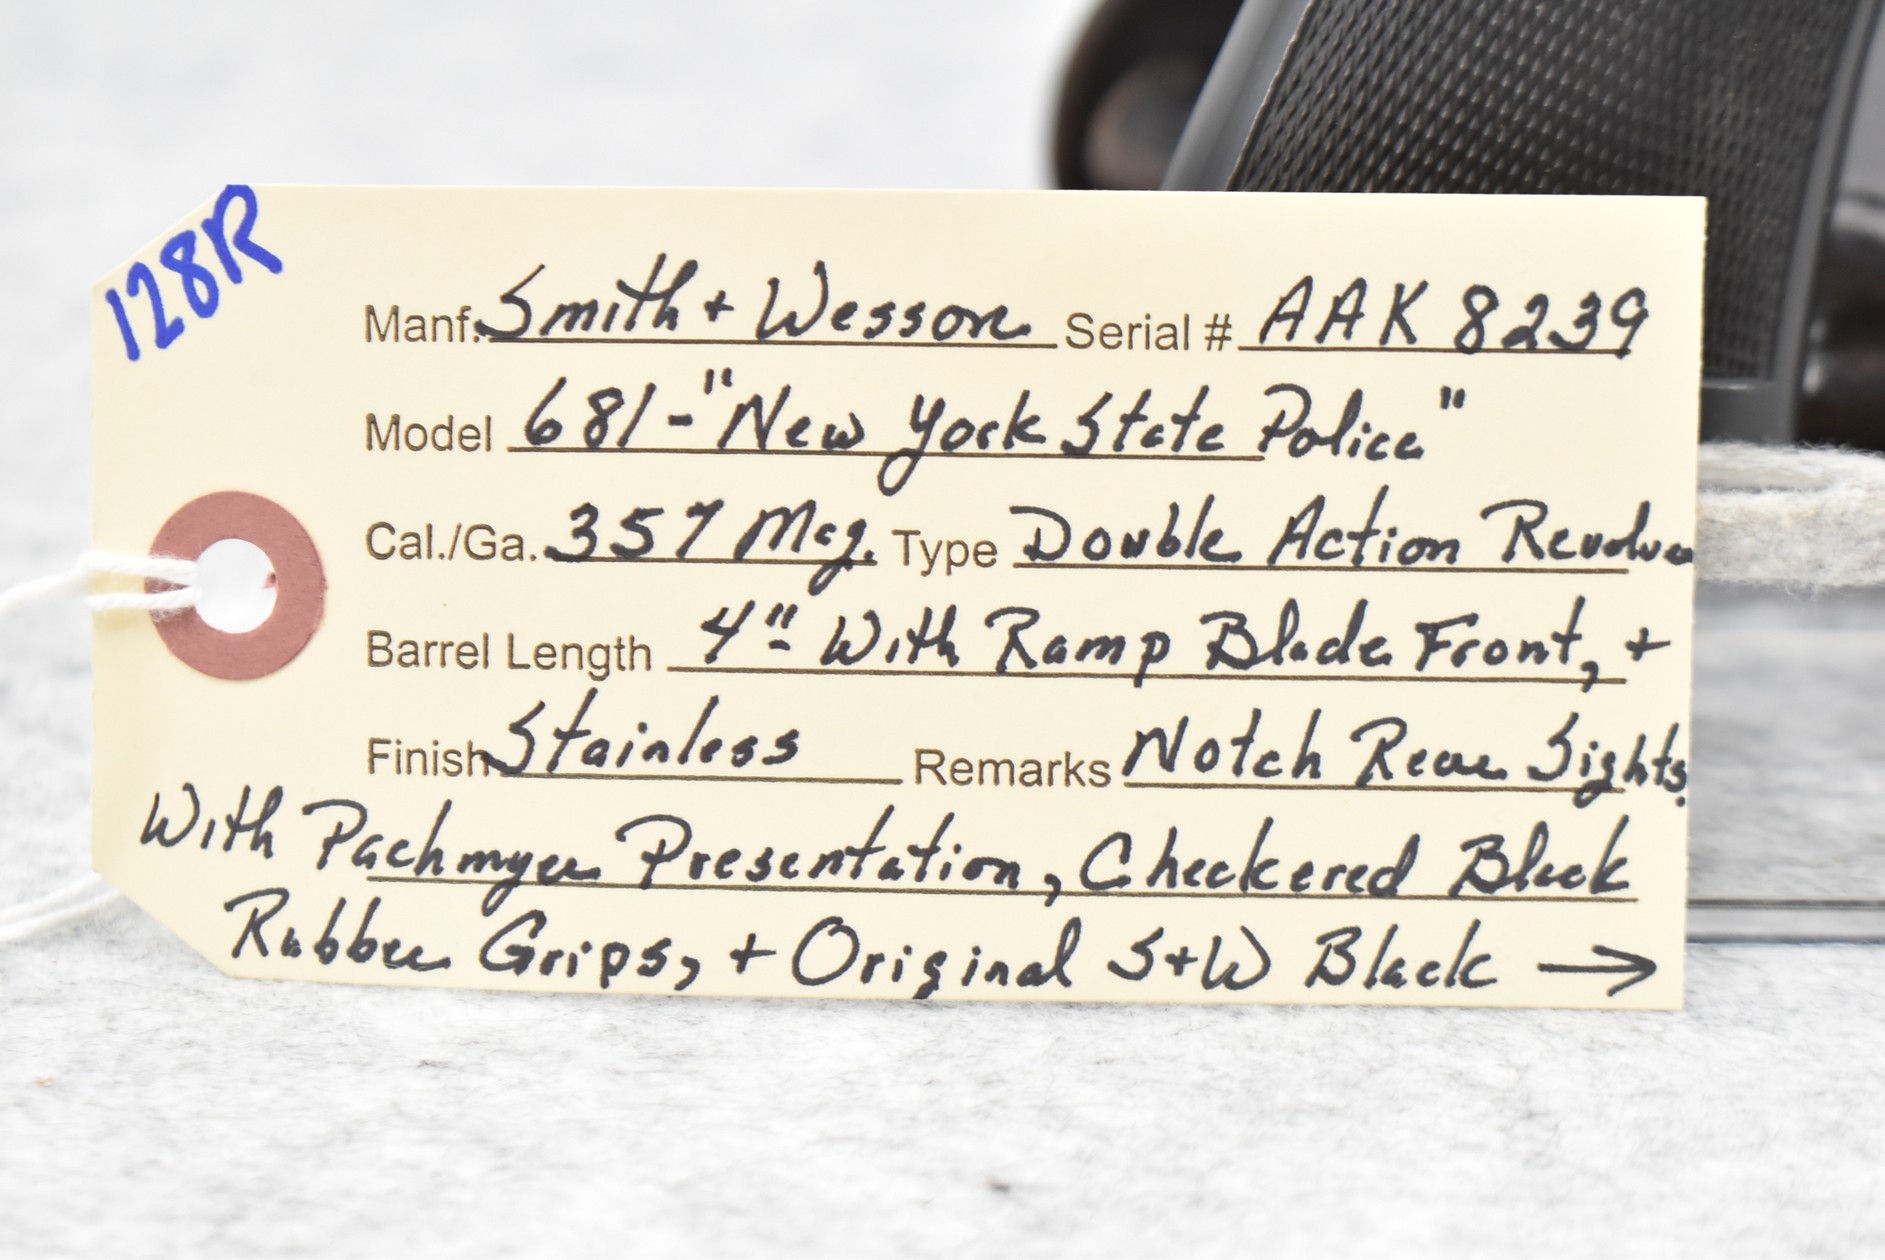 128R
Manf. Smith + Wesson Serial # AAK 8239
Model 681 - "New York State Police"
Cal./Ga. 357 Mag. Type Double Action Revolver
Barrel Length 4" With Ramp Blade Front, +
Finish Stainless Remarks Notch Rear Sights.
With Pachmyer Presentation, Checkered Black
Rubber Grips, + Original S+W Black →